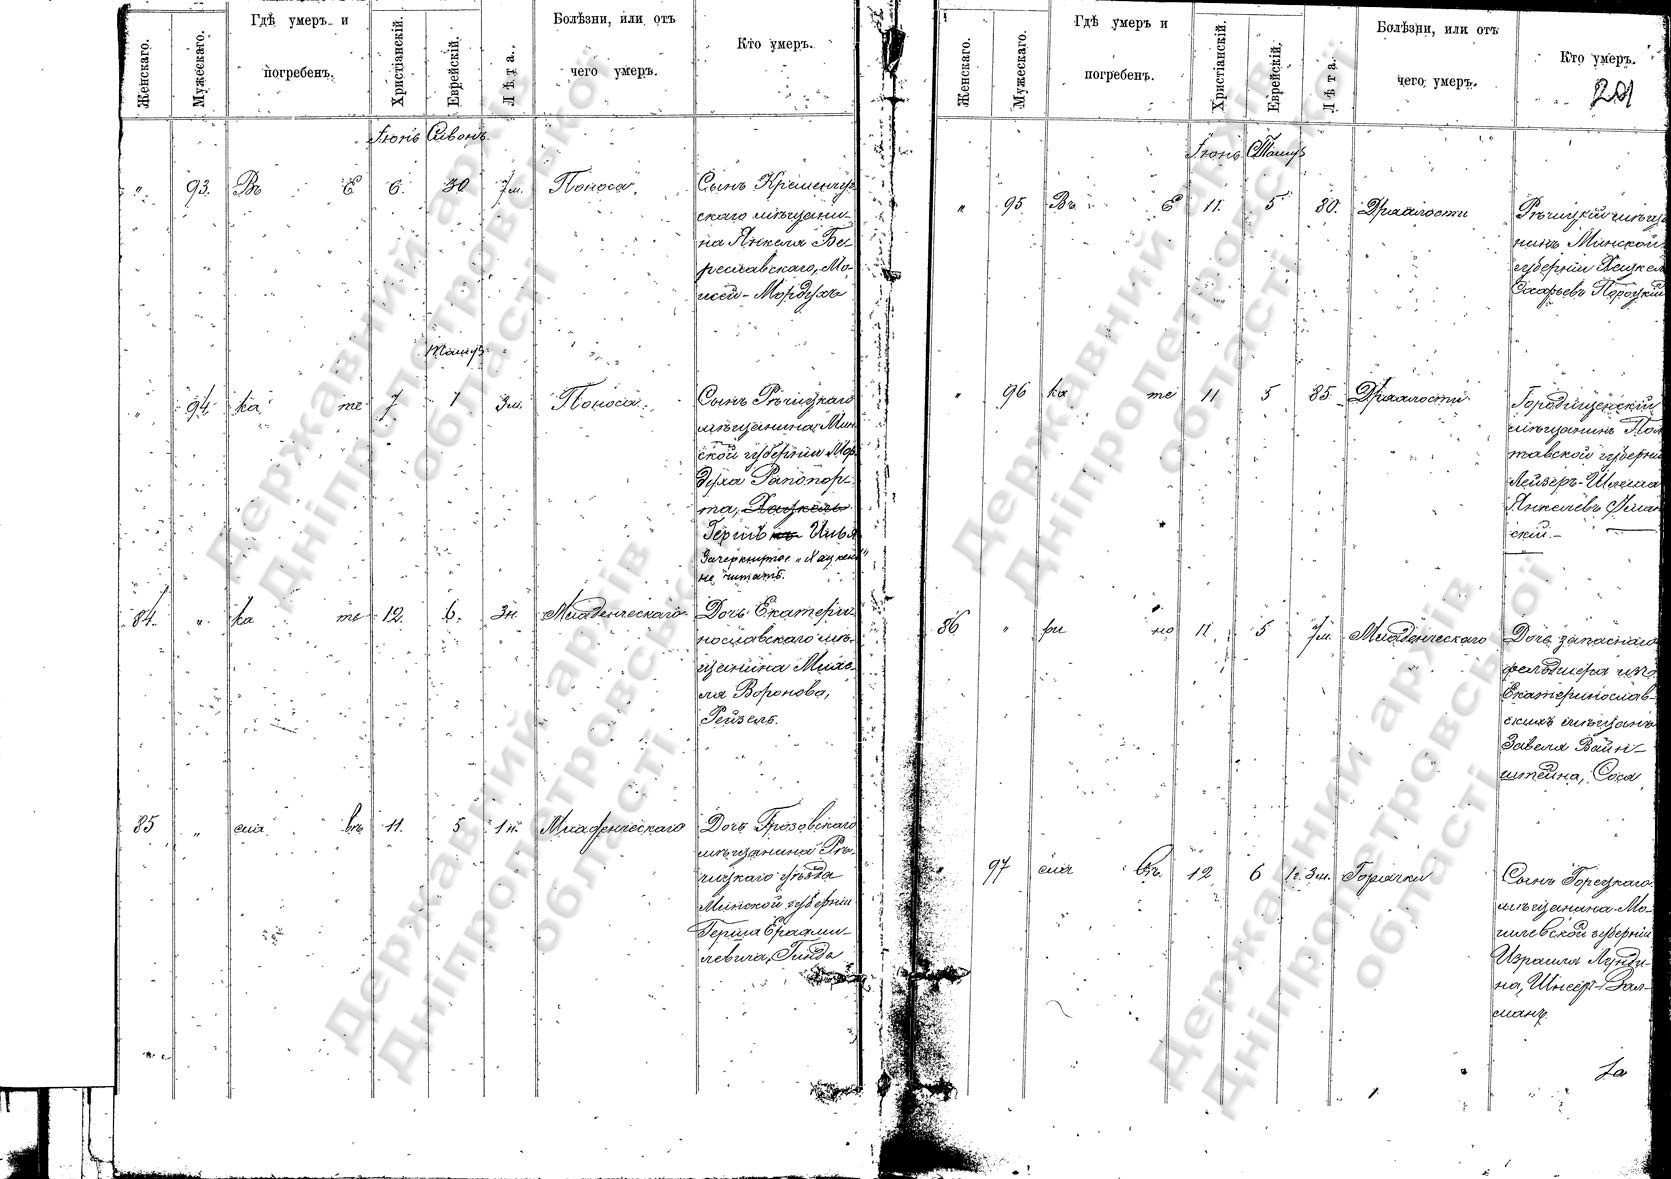 Женскаго.
Мужескаго.
Гдѣ умеръ и
погребенъ.
Христіанскій.
Еврейскій.
Лѣта.
Болѣзни, или отъ
чего умеръ.
Кто умеръ.
Іюнь Сивонъ
" 93. Въ Е 6. 30 7 м. Поноса.
Сынъ Кременчуг
скаго мѣщани-
на Янкеля Бе-
реславскаго, Мо-
исей-Мордухъ
Тамузъ
" 94. ка те 7 1 3 м. Поноса.
Сынъ Рѣчицкаго
мѣщанина Мин
ской губерніи Мор
духа Рапопор-
та, Хацкель
Гершъ Илья
Зачеркнутое "Хацкель"
не читать.
84. " ка те 12. 6. 3 н. Младенческаго
Дочь Екатери-
нославскаго мѣ-
щанина Михе-
ля Воронова,
Рейзель.
85 " сла въ 11. 5 1 н. Младенческаго
Дочь Грозовскаго
мѣщанина Рѣ-
чицкаго уѣзда
Минской губерніи
Герша
левича, Гинда
Женскаго.
Мужескаго.
Гдѣ умеръ и
погребенъ.
Христіанскій.
Еврейскій.
Лѣта.
Болѣзни, или отъ
чего умеръ.
Кто умеръ.
Іюнь Тамузъ
" 95 Въ Е 11. 5 80. Дряхлости
Рѣчицкій мѣща
нинъ Минской
губерніи Хацкель
" 96 ка те 11 5 85 Дряхлости.
Городищенскій
мѣщанинъ Пол
тавской губерніи
Лейзеръ-Шлема
Янкелевъ Уман
скій.-
86 " ри но 11 5 7 м. Младенческаго
Дочь запаснаго
фельдшера изъ
Екатеринослав-
скихъ мѣщанъ
Завеля Вайн-
штейна, Сося
97 сла въ. 12 6 1 г. 3 м. Горячки
Сынъ Горецкаго
мѣщанина Мо-
гилевской губерніи
Израиля Лунди-
на, Шнеер-Зал-
манъ
Державний архів
Дніпропетровської
області
Державний архів
Дніпропетровської
області
Державний архів
Дніпропетровської
області
Державний архів
Дніпропетровської
області